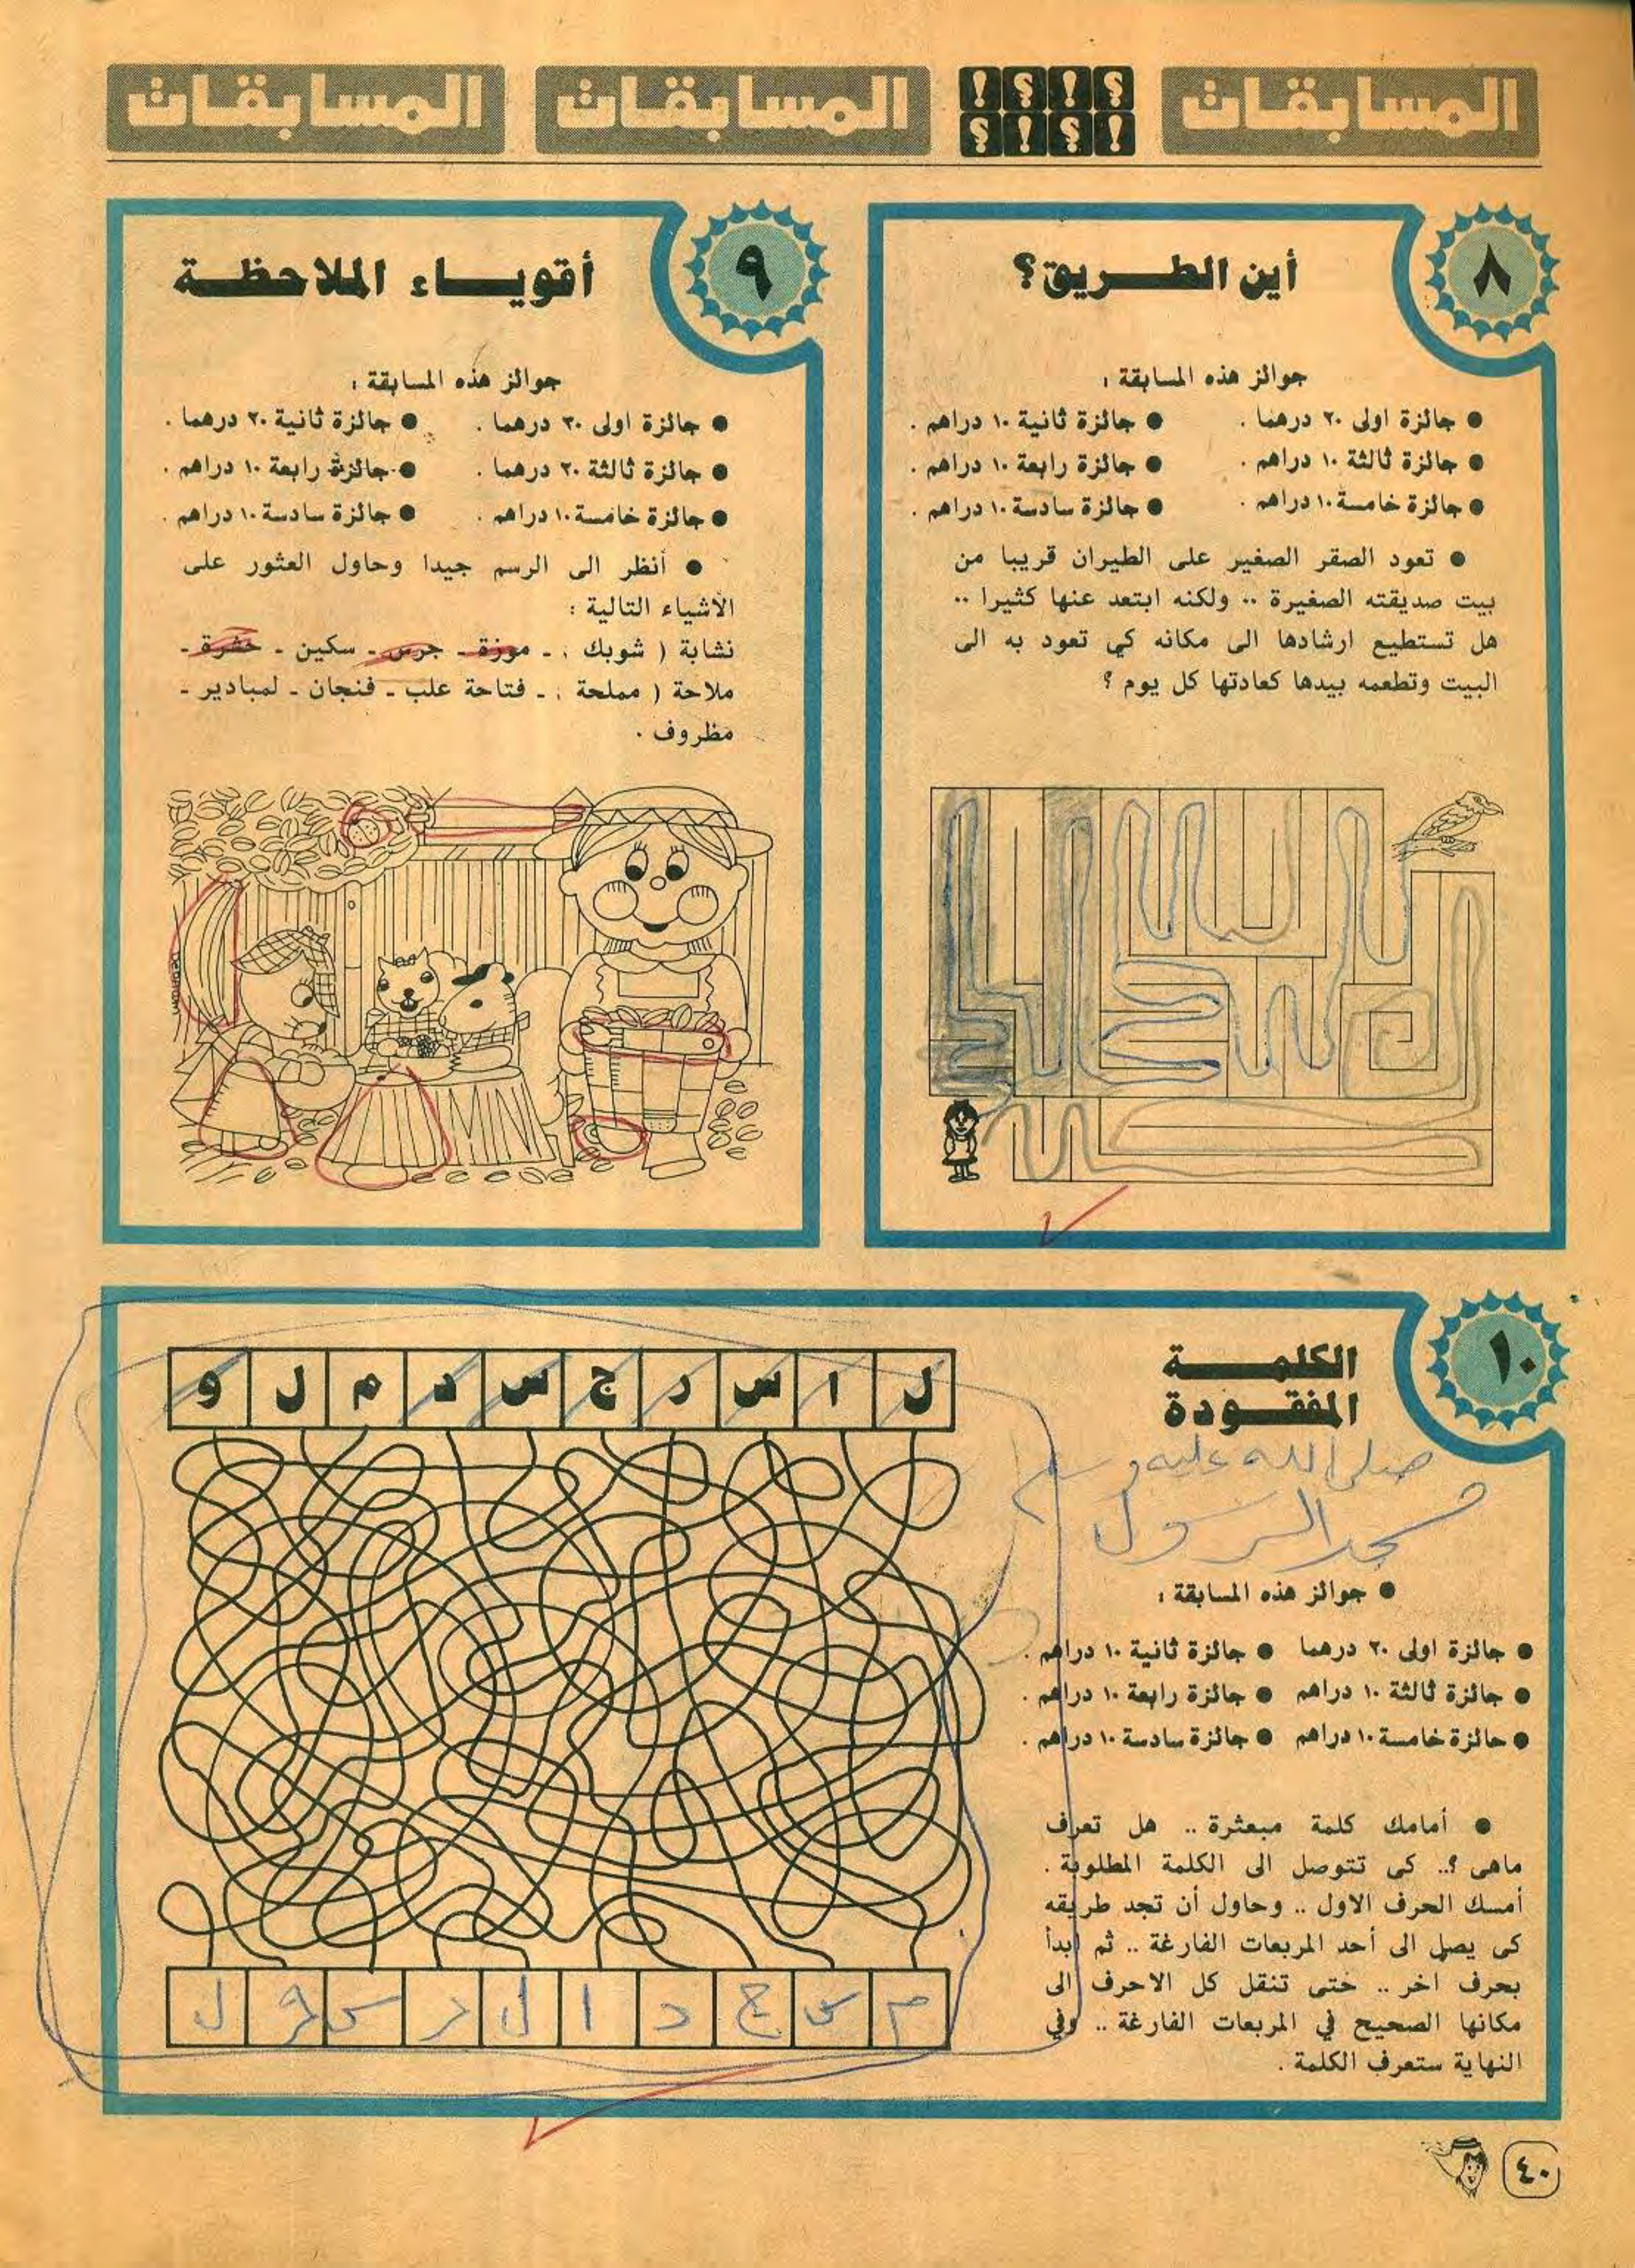 المسابقات ؟!؟! !؟!؟ المسابقات المسابقات
٨
أين الطريق؟
جوائز هذه المسابقة :
● جائزة اولى ٢٠ درهما . ● جائزة ثانية ١٠ دراهم .
● جائزة ثالثة ١٠ دراهم . ● جائزة رابعة ١٠ دراهم .
● جائزة خامسة ١٠ دراهم . ● جائزة سادسة ١٠ دراهم .
● تعود الصقر الصغير على الطيران قريبا من
بيت صديقته الصغيرة .. ولكنه ابتعد عنها كثيرا ..
هل تستطيع ارشادها الى مكانه كي تعود به الى
البيت وتطعمه بيدها كعادتها كل يوم ؟
٩
أقوياء الملاحظة
جوائز هذه المسابقة :
● جائزة اولى ٣٠ درهما . ● جائزة ثانية ٢٠ درهما .
● جائزة ثالثة ٢٠ درهما . ● جائزة رابعة ١٠ دراهم .
● جائزة خامسة ١٠ دراهم . ● جائزة سادسة ١٠ دراهم .
● أنظر الى الرسم جيدا وحاول العثور على
الأشياء التالية :
نشابة ( شوبك ) ـ موزة ـ جرس ـ سكين ـ حشرة ـ
ملاحة ( مملحة ) ـ فتاحة علب ـ فنجان ـ لمبادير ـ
مظروف .
١٠
الكلمة
المفقودة
صلى الله عليه وسلم
مسجد الرسول
● جوائز هذه المسابقة :
● جائزة اولى ٢٠ درهما ● جائزة ثانية ١٠ دراهم .
● جائزة ثالثة ١٠ دراهم ● جائزة رابعة ١٠ دراهم .
● جائزة خامسة ١٠ دراهم ● جائزة سادسة ١٠ دراهم .
● أمامك كلمة مبعثرة .. هل تعرف
ماهى ؟.. كى تتوصل الى الكلمة المطلوبة .
أمسك الحرف الاول .. وحاول أن تجد طريقه
كى يصل الى أحد المربعات الفارغة .. ثم ابدأ
بحرف اخر .. حتى تنقل كل الاحرف الى
مكانها الصحيح في المربعات الفارغة .. وفي
النهاية ستعرف الكلمة .
ل ا س ر ج س د م ل و
م س ج د ا ل ر س و ل
٤٠